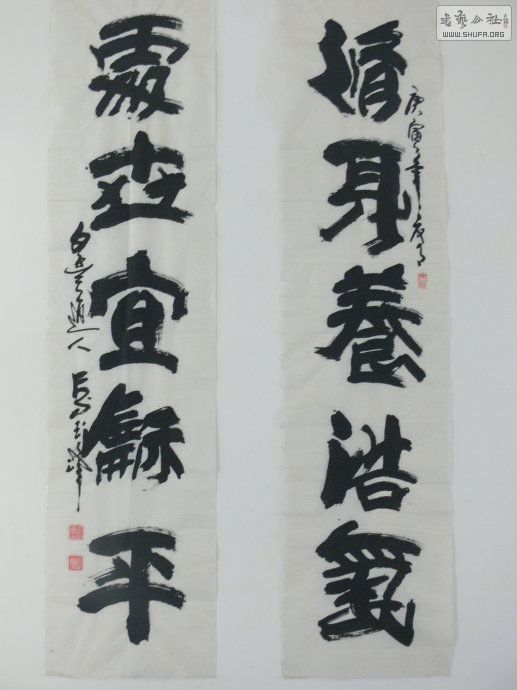 書藝公社
WWW.SHUFA.ORG
脩身養浩氣
庚寅年
處世宜龢平